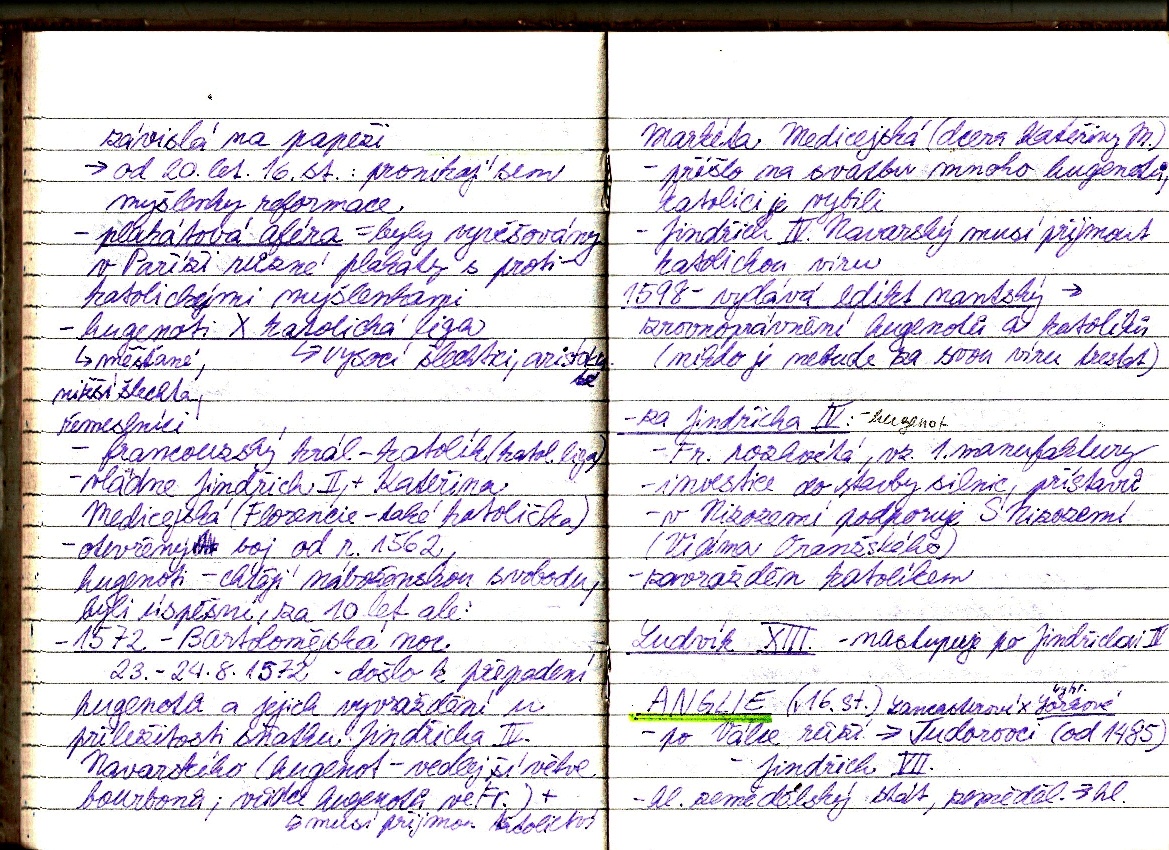 závislá na papeži
→ od 20. let. 16. st. : pronikají sem
myšlenky reformace
- plakátová aféra = byly vyvěšovány
v Paříži různé plakáty s proti-
katolickými myšlenkami
- hugenoti X katolická liga
↳ měšťané, ↳ vysocí šlechtici,
nižší šlechta,
řemeslníci
- francouzský král - katolík (katol. liga)
- vládne Jindřich II, + Kateřina
Medicejská (Florencie - také katolička)
- otevřený boj od r. 1562,
hugenoti - chtějí náboženskou svobodu,
byli úspěšní, za 10 let ale:
- 1572 - Bartolomějská noc.
23. - 24. 8. 1572 - došlo k přepadení
hugenotů a jejich vyvraždění u
příležitosti sňatku Jindřicha IV.
Navarského (hugenot - vedlejší větve
bourbonů; vůdce hugenotů ve Fr.) +
↳ musí přijmou
Markéta Medicejská (dcera Kateřiny M.)
- přišlo na svatbu mnoho hugenotů,
katolíci je vybili
- Jindřich IV. Navarský musí přijmout
katolickou víru
1598 - vydává edikt nantský →
zrovnoprávnění hugenotů a katolíků
(nikdo je nebude za svou víru trestat)
- za Jindřicha IV: - hugenot
- Fr. rozkvétá, vz. 1. manufaktury
- investice do stavby silnic, přístavů
- v Nizozemí podporuje S Nizozemí
(Viléma Oranžského)
- zavražděn katolíkem
Ludvík XIII - nastupuje po Jindřichovi IV
ANGLIE (v 16. st.) Lancasterové x Yorkové
- po Válce růží → Tudorovci (od 1485)
- Jindřich VII.
- hl. zemědělský stát, zeměděl. → hl.